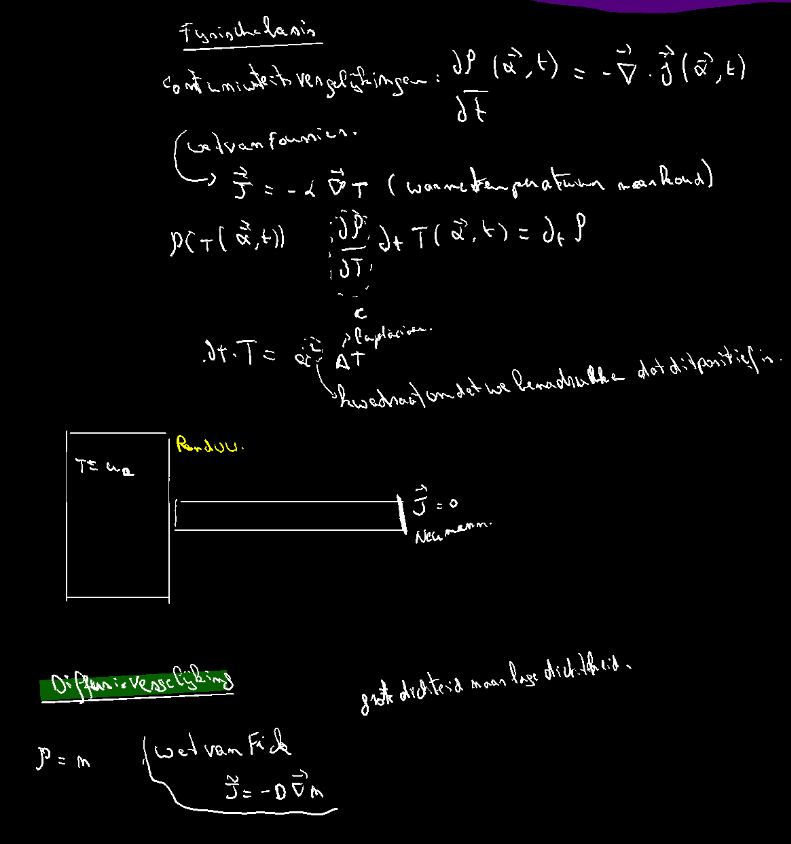 Fysische basis
continuiteits vergelijkingen: ∂ρ/∂t (x⃗, t) = -∇⃗ · j⃗ (x⃗, t)
wet van Fourier.
J⃗ = -α ∇⃗ T (warme temperatuur naar koud)
ρ(T(x⃗,t)) ∂ρ/∂T ∂t T(x⃗, t) = ∂t ρ
c
Laplaciaan.
∂t · T = α² ΔT
kwadraat omdat we benadrukken dat dit positief is.
Randvw.
T = u₀
J⃗ = 0
Neumann.
Diffusievergelijking
grote dichteid naar lage dichtheid.
ρ = n wet van Fick
J⃗ = -D ∇⃗ n